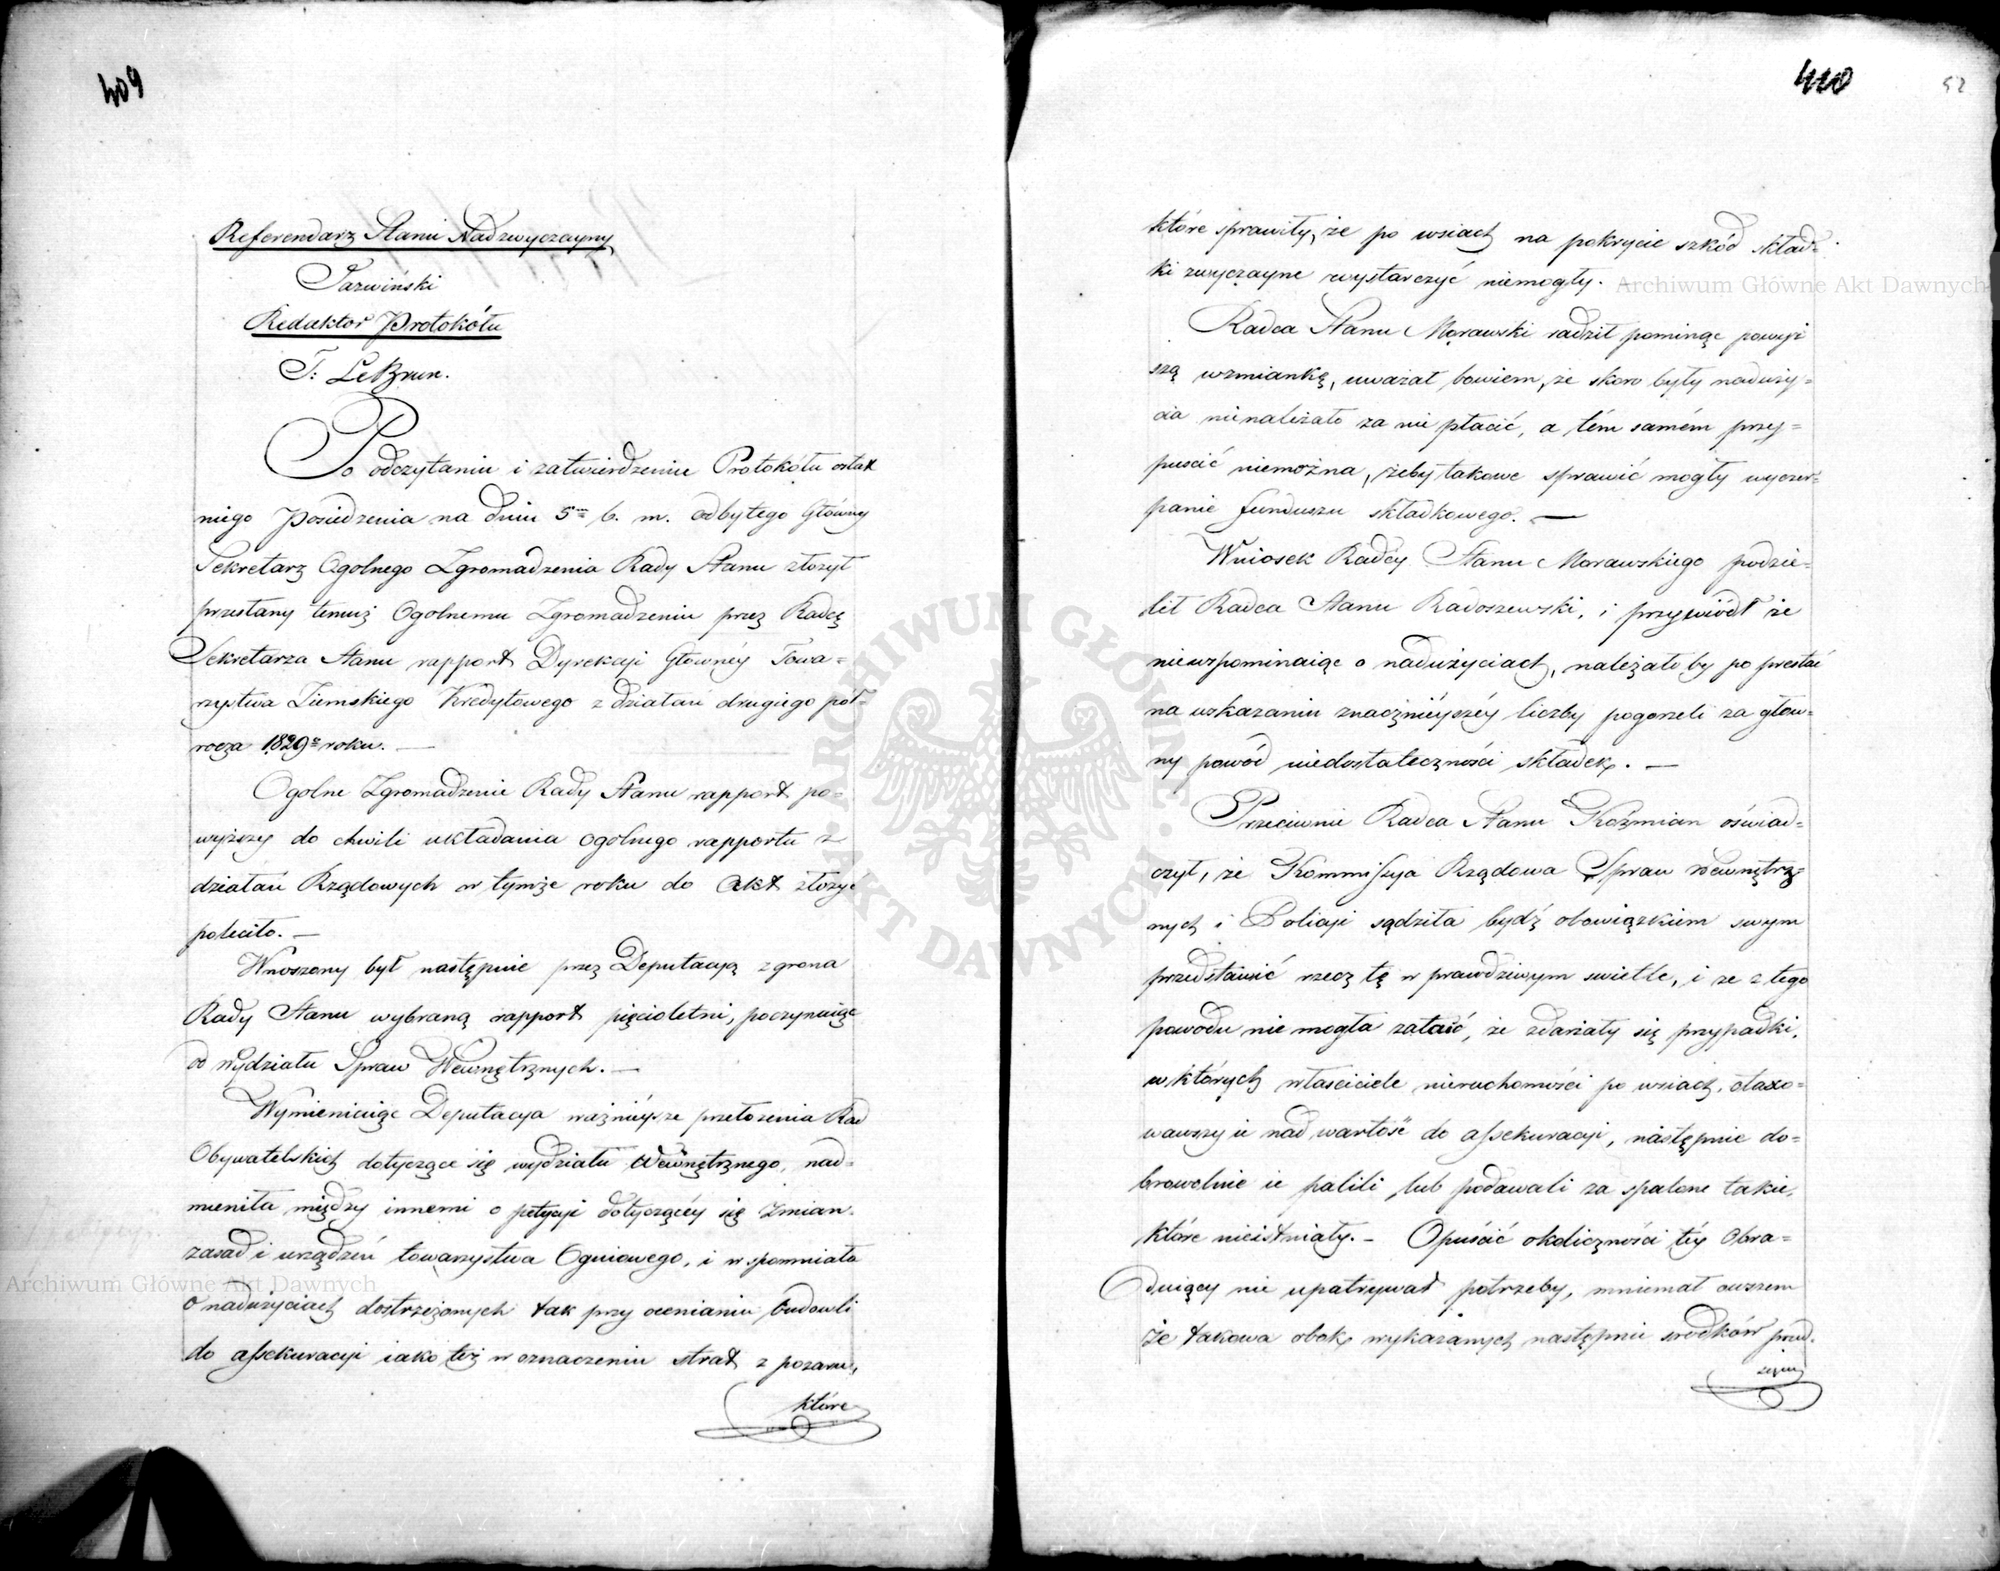 409
Referendarz Stanu Nadzwyczayny
Tarwiński
Redaktor Protokółu
T: LeBrun.
Po odczytaniu i zatwierdzeniu Protokółu ostat
niego Posiedzenia na dniu 5m b. m. odbytego Główny
Sekretarz Ogolnego Zgromadzenia Rady Stanu złożył
przesłany temuż Ogolnemu Zgromadzeniu przez Radcę
Sekretarza Stanu rapport Dyrekcyi Głównéy Towa=
rzystwa Ziemskiego Kredytowego z działań drugiego pół=
rocza 1829o roku. —
Ogolne Zgromadzenie Rady Stanu rapport po=
wyższy do chwili układania ogolnego rapportu z
działań Rządowych w tymże roku do Akt złożyć
poleciło. —
Wnoszony był następnie przez Deputacyą z grona
Rady Stanu wybraną rapport pięcioletni, poczynaiąc
od wydziału Spraw Wewnętrznych. —
Wymieniaiąc Deputacya ważnieysze przełożenia Rad
Obywatelskich dotyczące się wydziału Wewnętrznego, nad=
mieniła między innemi o petycyi dotyczącéy się zmian
zasad i urządzeń towarzystwa Ogniowego, i wspomniała
o nadużyciach dostrzeżonych tak przy ocenianiu budowli
do assekuracyi iako też w oznaczeniu strat z pożaru,
które
410
52
które sprawiły, że po wsiach na pokrycie szkód skład=
ki zwyczayne wystarczyć niemogły.
Radca Stanu Morawski radził pominąć powyż
szą wzmiankę, uważał bowiem, że skoro były naduży=
cia nienależało za nie płacić, a tém samém przy=
puścić niemożna, żeby takowe sprawić mogły wyczer=
panie funduszu składkowego. —
Wniosek Radcy Stanu Morawskiego podzie=
lił Radca Stanu Radoszewski, i przywiódł że
niewspominaiąc o nadużyciach, należałoby poprzestać
na wskazaniu znacznieyszéy liczby pogorzeli za głów=
ny powód niedostateczności składek. —
Przeciwnie Radca Stanu Koźmian oświad=
czył, że Kommissya Rządowa Spraw Wewnętrz=
nych i Policyi sądziła bydź obowiązkiem swym
przedstawić rzecz tę w prawdziwym świetle, i że z tego
powodu nie mogła zataić, że zdarzały się przypadki,
w których właściciele nieruchomości po wsiach, otaxo=
wawszy ie nad wartość do assekuracyi, następnie do=
browolnie ie palili lub podawali za spalone takie,
które nieistniały. — Opuścić okoliczności téy Obra=
duiący nie upatrywał potrzeby, mniemał owszem
że takowa obok wykazanych następnie srodków przed=
Archiwum Główne Akt Dawnych
Archiwum Główne Akt Dawnych
ARCHIWUM GŁÓWNE AKT DAWNYCH